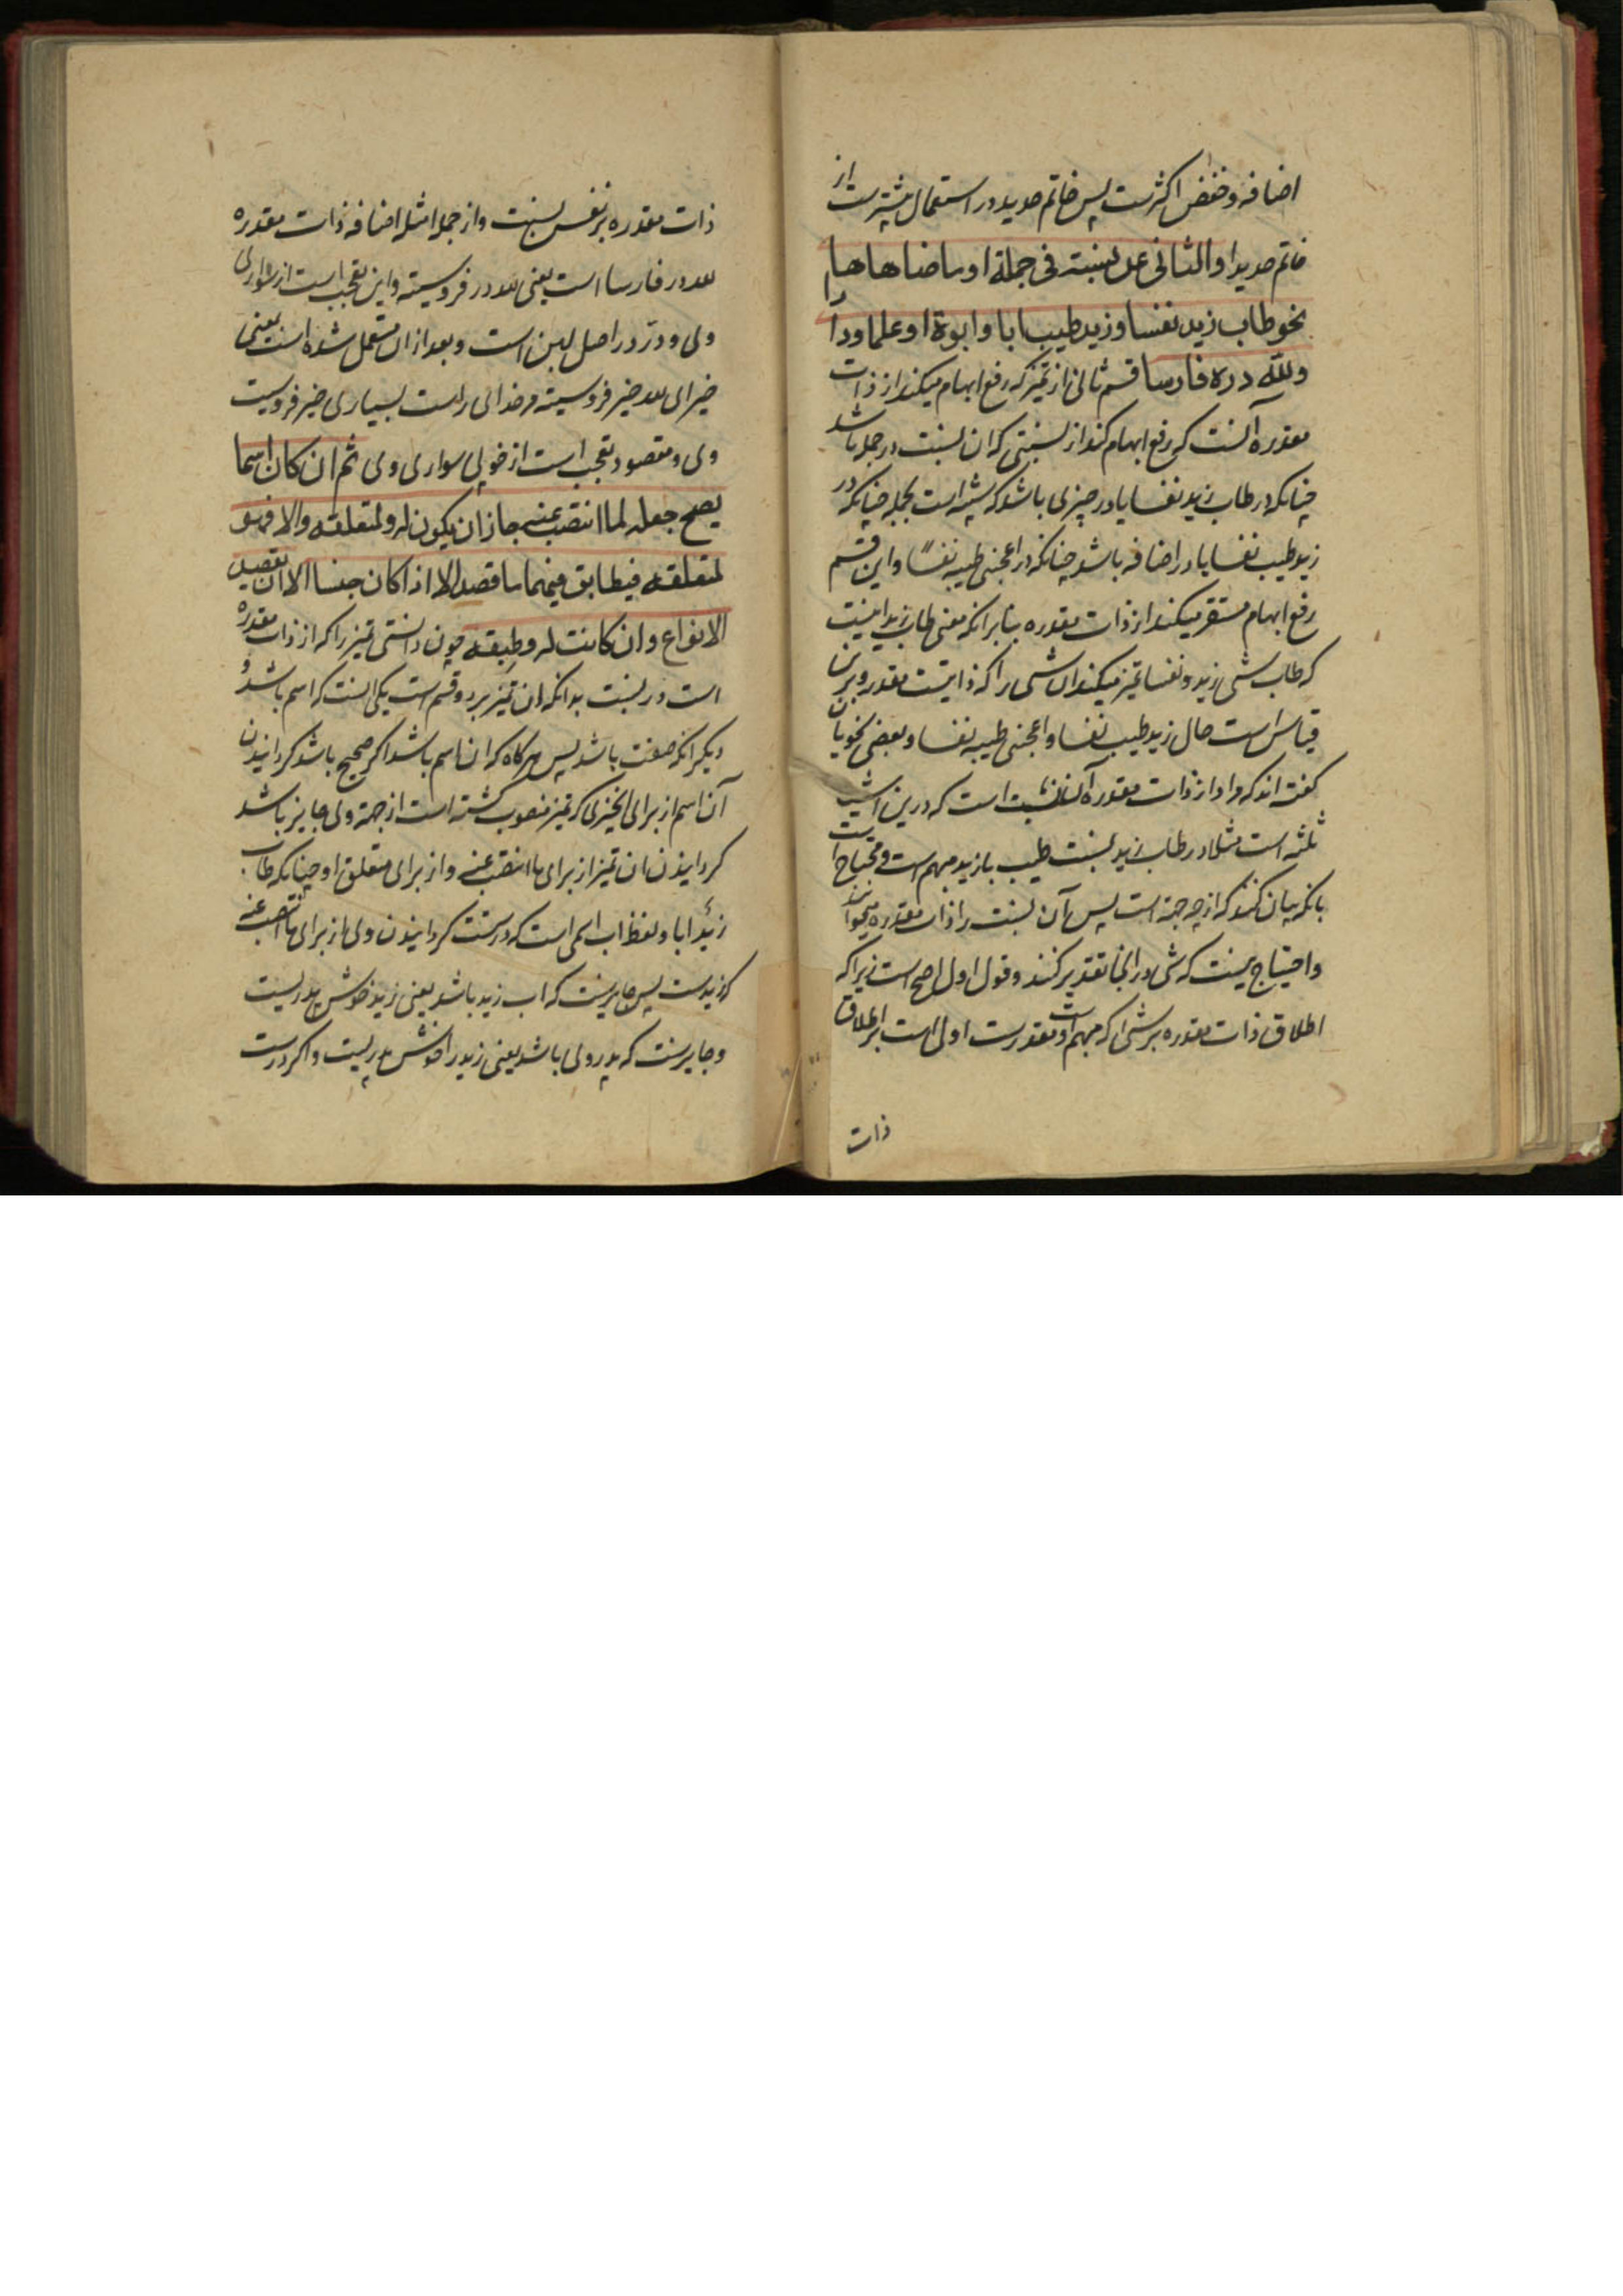 اضافه و خفض اکثرست پس خاتم حدید در استعمال بیشترست از
خاتم حدیدا والثانی عن نسبته فی جملة او ما ضاهاها
نحو طاب زید نفسا و زید طیب ابا و ابوة او علما و دارا
ولله دره فارسا قسم ثانی از تمیز که رفع ابهام میکند از ذات
مقدره آنست که رفع ابهام کند از نسبتی که ان نسبت در جمله باشد
چنانکه در طاب زید نفسا یا در چیزی باشد که شبه است بجمله چنانکه در
زید طیب نفسا یا در اضافه باشد چنانکه در اعجبنی طیبه نفسًا و این قسم
رفع ابهام مستقر میکند از ذات مقدره بنابرانکه معنی طاب زید اینست
که طاب شی زید و نفسا تمیز میکند ان شی را که ذاتیست مقدر و برین
قیاس است حال زید طیب نفسا و اعجبنی طیبه نفسا و بعضی نحویان
گفته اند که مراد از ذات مقدره آن نسبت است که درین اشیا
ثلثه است مثلا در طاب زید نسبت طیب با زید مبهم است و محتاج است
بانکه بیان کنند که از چه جهة است پس آن نسبت را ذات مقدره میخوانند
و احتیاج نیست که شی در انجا تقدیر کنند و قول اول اصح است زیرا که
اطلاق ذات مقدره بر شی که مبهم است و مقدرست اولی است بر اطلاق
ذات
ذات مقدره بر نفس نسبت و از جمله امثله اضافه ذات مقدره
لله دره فارسا است یعنی لله در فروسیته و این تعجب است از سواری
وی و در در اصل لبن است و بعد ازان مستعمل شده است یعنی
خیر ای لله خیر فروسیته و خدای راست بسیاری خیر فروسیت
وی و مقصود تعجب است از خوبی سواری وی ثم ان کان اسما
یصح جعله لما انتصب عنه جاز ان یکون له و لمتعلقه والا فهو
لمتعلقه فیطابق فیهما ما قصد الا اذا کان جنسا الا ان یقصد
الانواع و ان کانت له و طبقه چون دانستی تمیز را که از ذات مقدره
است در نسبت بدانکه ان تمیز بر دو قسم است یکی انست که اسم باشد و
دیگر انکه صفت باشد پس هرگاه که ان اسم باشد اگر صحیح باشد گردانیدن
آن اسم از برای انچیزی که تمیز منصوب گشته است از جهة وی جایز باشد
گردانیدن ان تمیز از برای ما انتصب عنه و از برای متعلق او چنانکه طاب
زیدٌ ابا و لفظ اب اسمی است که درستست گردانیدن وی از برای ما انتصب عنه
که زیدست پس جایزست که اب زید باشد یعنی زید خوش پدریست
و جایزست که پدر وی باشد یعنی زید را خوش پدریست و اگر درست